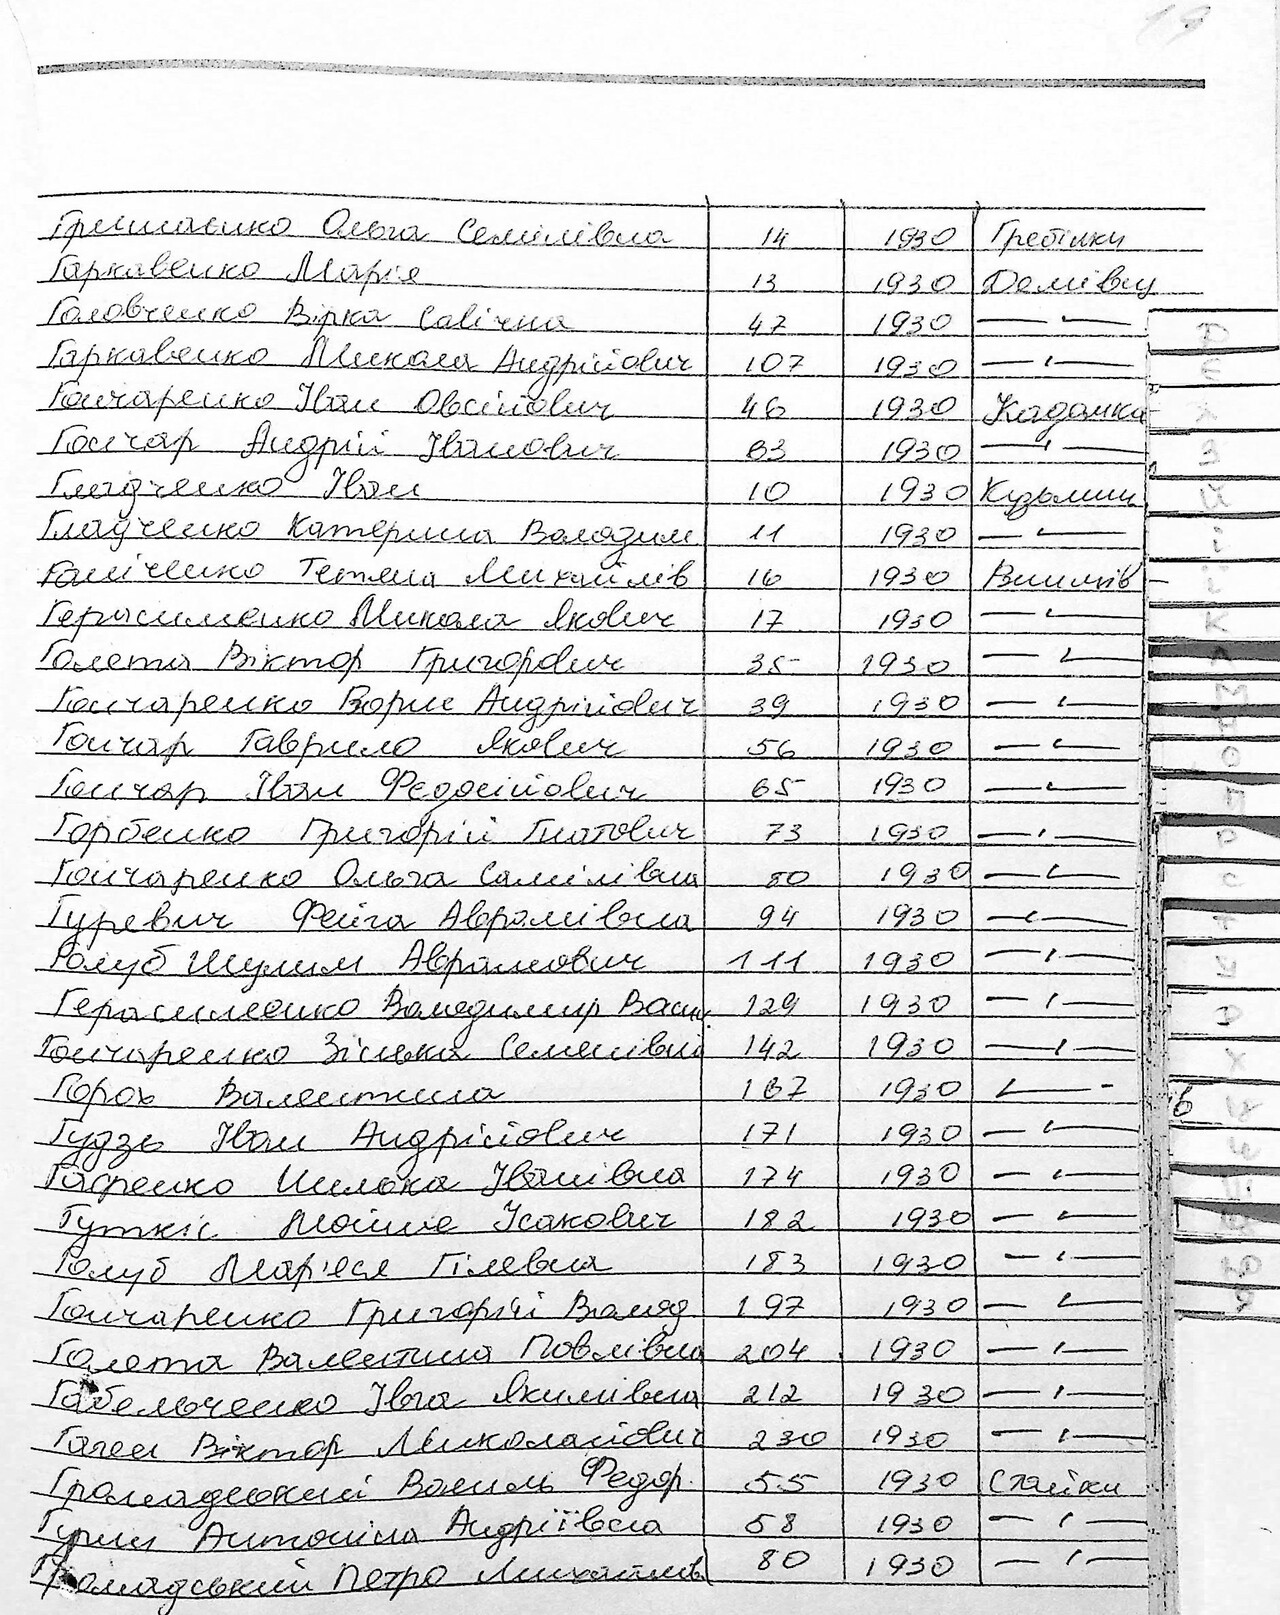 19
Гришаенко Ольга Семилівна 14 1930 Гребінки
Гаркавенко Марія 13 1930 Демівщ
Головченко Вірка Савічна 47 1930 — " —
Гаркавенко Микола Андрійович 107 1930 — " —
Гончаренко Іван Овсійович 46 1930 Кодаки
Гончар Андрій Іванович 63 1930 — " —
Гладченко Іван 10 1930 Кузьмин
Гладченко Катерина Володим 11 1930 — " —
Тетяна Михайлів 16 1930
Герасименко Микола Якович 17 1930 — " —
Голета Віктор Григорович 35 1930 — " —
Гончаренко Борис Андрійович 39 1930 — " —
Гончар Гаврило Якович 56 1930 — " —
Гончар Іван Федосійович 65 1930 — " —
Горбенко Григорій Гнатович 73 1930 — " —
Гончаренко Ольга Самілівна 80 1930 — " —
Гуревич Фейга Аврамівна 94 1930 — " —
Голуб Шулим Аврамович 111 1930 — " —
Герасименко Володимир Васи 129 1930 — " —
Гончаренко Зінька Семенівна 142 1930 — " —
Горох Валентина 167 1930 — " —
Гудзь Іван Андрійович 171 1930 — " —
Іванівна 174 1930 — " —
Гуткіс Мойше Ісакович 182 1930 — " —
Голуб Мар'яся Гілевна 183 1930 — " —
Гончаренко Григорій Волод 197 1930 — " —
Голета Валентина Павлівна 204 1930 — " —
Габельченко Івга Якимівна 212 1930 — " —
Гаген Віктор Миколайович 230 1930 — " —
Громадський Василь Федор. 55 1930 Стайки
Гурин Антоніна Андріївна 58 1930 — " —
Громадський Петро Михайлів 80 1930 — " —